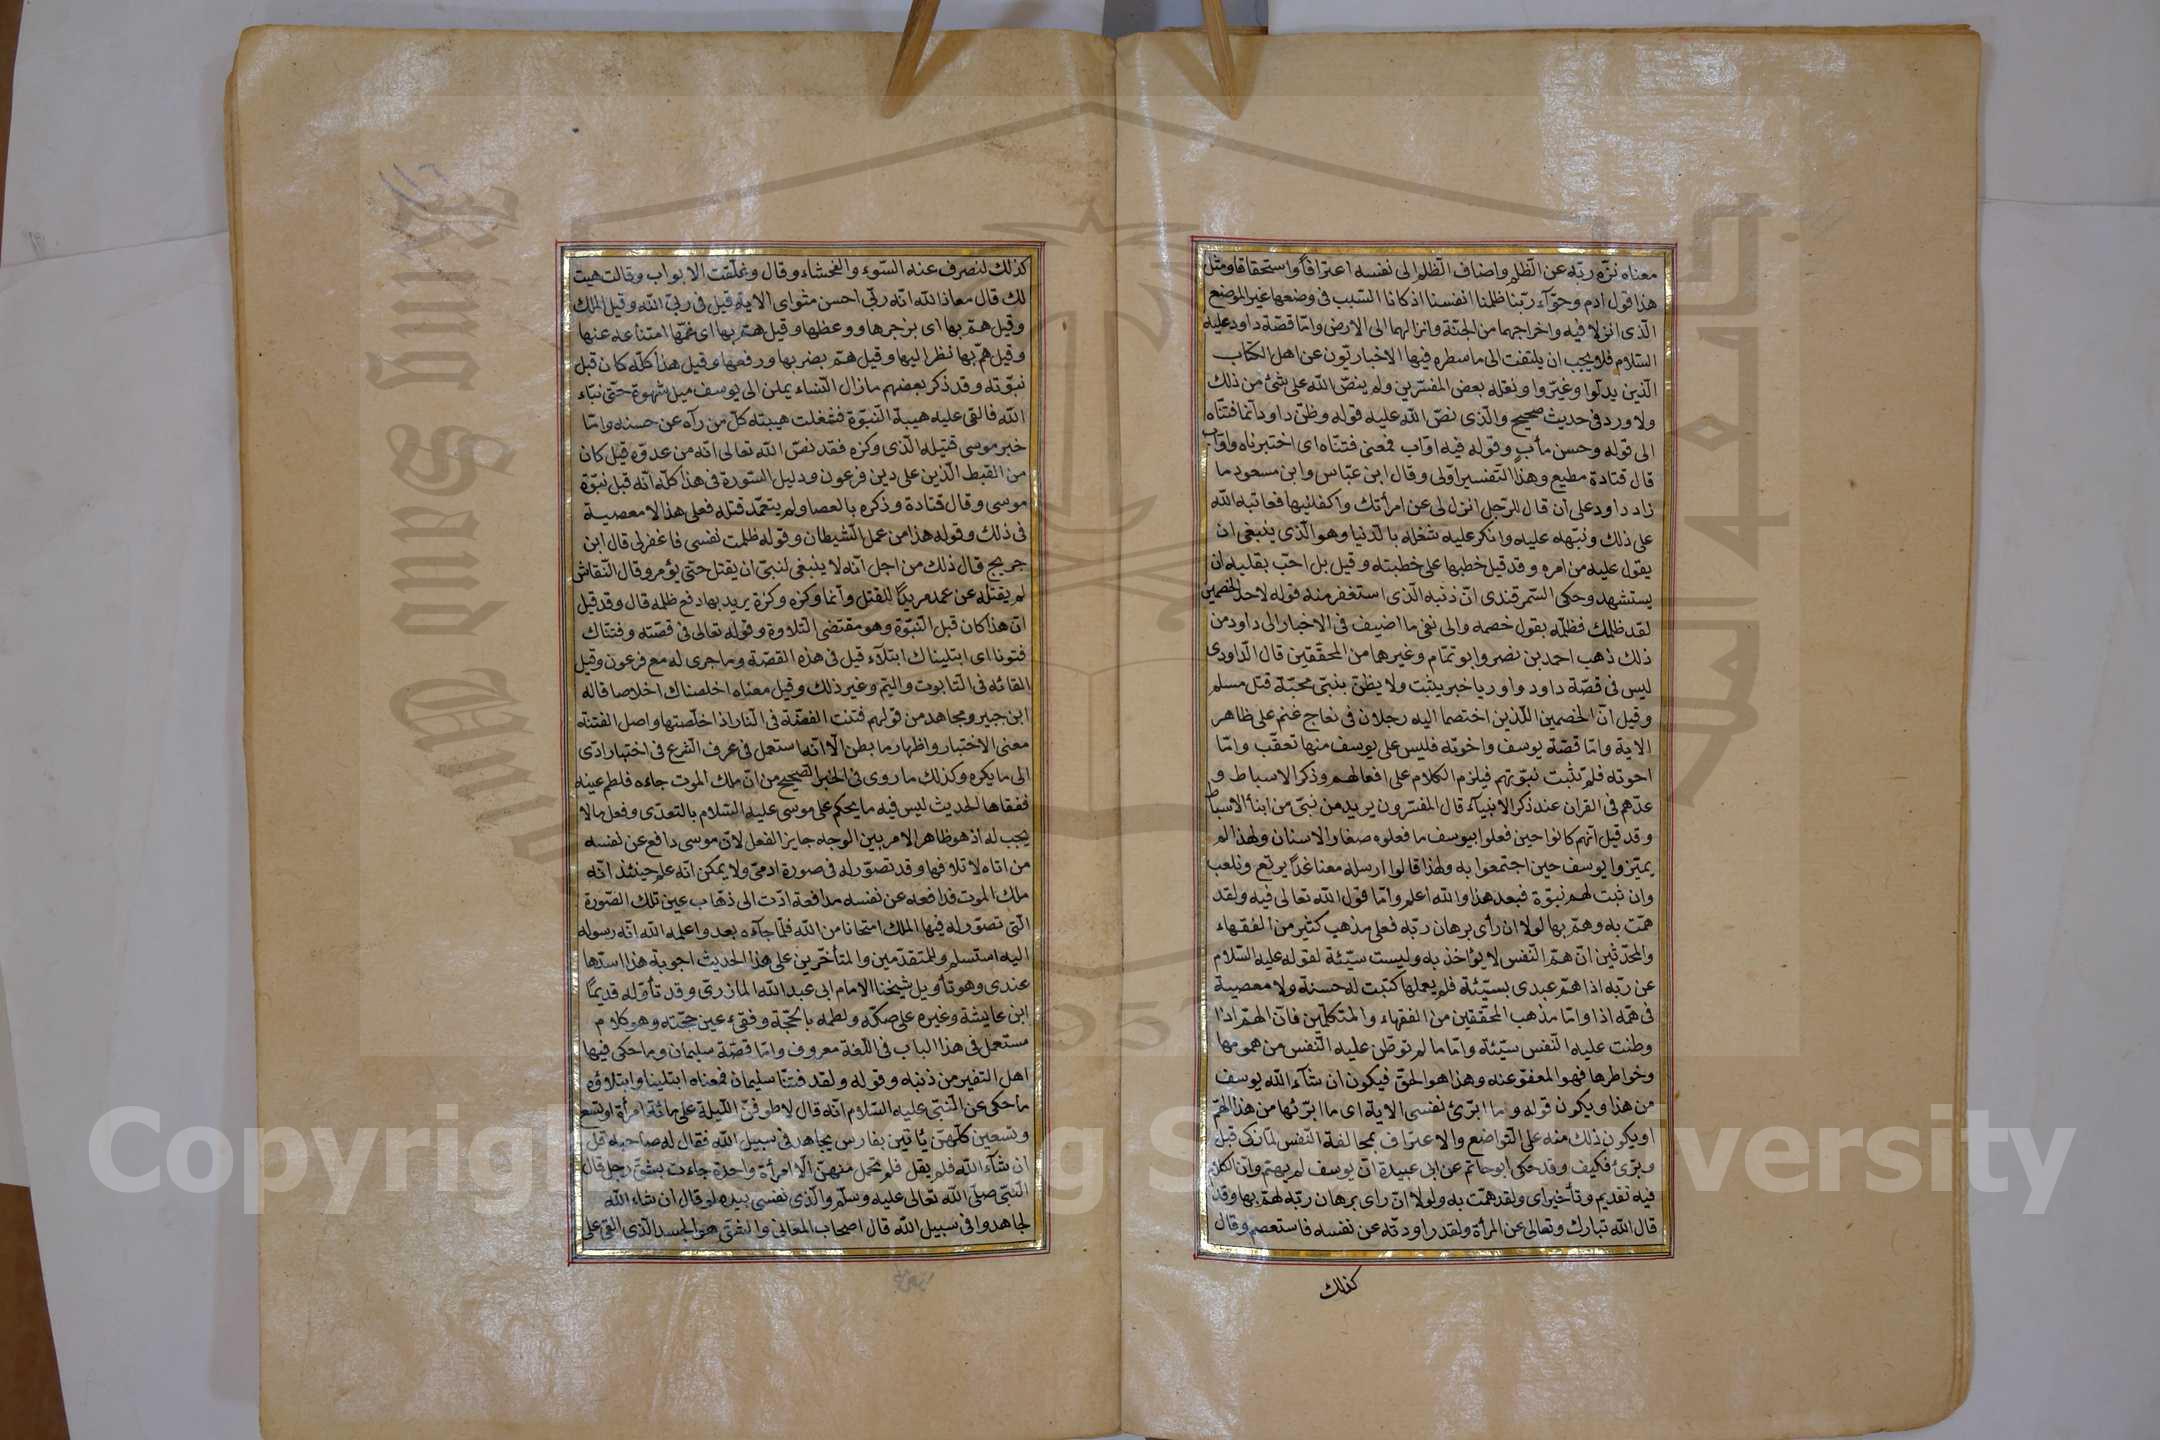 معناه نزه ربه عن الظلم واضاف الظلم الى نفسه اعترافا واستحقاقا ومثل
هذا قول ادم وحوآء ربنا ظلمنا انفسنا اذ كانا السبب فى وضعها غير الموضع
الذى انزلا فيه واخراجهما من الجنة وانزالهما الى الارض واما قصة داود عليه
السلام فلا يجب ان يلتفت الى ما سطره فيها الاخباريون عن اهل الكتاب
الذين بدلوا وغيروا ونقله بعض المفسرين ولم ينص الله على شئ من ذلك
ولا ورد فى حديث صحيح والذى نص الله عليه قوله وظن داود انما فتناه
الى قوله وحسن مأب وقوله فيه اواب فمعنى فتناه اى اختبرناه واواب
قال قتادة مطيع وهذا التفسير اولى وقال ابن عباس وابن مسعود ما
زاد داود على ان قال للرجل انزل لى عن امرأتك واكفلنيها فعاتبه الله
على ذلك ونبهه عليه وانكر عليه شغله بالدنيا وهو الذى ينبغى ان
يقول عليه من امره وقد قيل خطبها على خطبته وقيل بل احب بقلبه ان
يستشهد وحكى السمرقندى ان ذنبه الذى استغفر منه قوله لاحد الخصمين
لقد ظلمك فظلمه بقول خصمه والى نفى ما اضيف فى الاخبار الى داود من
ذلك ذهب احمد بن نصر وابو تمام وغيرهما من المحققين قال الداودى
ليس فى قصة داود واوريا خبر يثبت ولا يظن بنبى محبة قتل مسلم
وقيل ان الخصمين اللذين اختصما اليه رجلان فى نعاج غنم على ظاهر
الاية واما قصة يوسف واخوته فليس على يوسف منها تعقب واما
اخوته فلم تثبت نبوتهم فيلزم الكلام على افعالهم وذكر الاسباط و
عدهم فى القران عند ذكر الانبياء قال المفسرون يريد من نبى من ابناء الاسباط
وقد قيل انهم كانوا حين فعلوا بيوسف ما فعلوه صغار الاسنان ولهذا لم
يميزوا يوسف حين اجتمعوا به ولهذا قالوا ارسله معنا غدا يرتع ونلعب
وان ثبت لهم نبوة فبعد هذا والله اعلم واما قول الله تعالى فيه ولقد
همت به وهم بها لولا ان رأى برهان ربه فعلى مذهب كثير من الفقهاء
والمحدثين ان هم النفس لا يؤاخذ به وليست سيئة لقوله عليه السلام
عن ربه اذا هم عبدى بسيئة فلم يعملها كتبت له حسنة ولا معصية
فى همه اذا واما مذهب المحققين من الفقهاء والمتكلمين فان الهم اذا
وطنت عليه النفس سيئة واما ما لم توطن عليه النفس من همومها
وخواطرها فهو المعفو عنه وهذا هو الحق فيكون ان شآء الله يوسف
من هذا ويكون قوله وما ابرئ نفسى الاية اى ما ابرئها من هذا الهم
او يكون ذلك منه على التواضع والاعتراف بمخالفة النفس لما زكى قبل
وبرئ فكيف وقد حكى ابو حاتم عن ابى عبيدة ان يوسف لم يهتم وان الكلام
فيه تقديم وتأخير اى ولقد همت به ولولا ان راى برهان ربه لهم بها وقد
قال الله تبارك وتعالى عن المرأة ولقد راودته عن نفسه فاستعصم وقال
كذلك
كذلك لنصرف عنه السوء والفحشاء وقال وغلقت الابواب وقالت هيت
لك قال معاذ الله انه ربى احسن مثواى الاية قيل فى ربى الله وقيل الملك
وقيل هم بها اى بزجرها ووعظها وقيل هم بها اى غمها امتناعه عنها
وقيل هم بها نظر اليها وقيل هم بضربها ورفعها وقيل هذا كله كان قبل
نبوته وقد ذكر بعضهم ما زال النساء يملن الى يوسف ميل شهوة حتى نباء
الله فالقى عليه هيبة النبوة فشغلت هيبته كل من رآه عن حسنه واما
خبر موسى قتيله الذى وكزه فقد نص الله تعالى انه من عدوه قيل كان
من القبط الذين على دين فرعون ودليل السورة فى هذا كله انه قبل نبوة
موسى وقال قتادة وذكره بالعصا ولم يتعمد قتله فعلى هذا لا معصية
فى ذلك وقوله هذا من عمل الشيطان وقوله ظلمت نفسى فاغفر لى قال ابن
جريج قال ذلك من اجل انه لا ينبغى لنبى ان يقتل حتى يؤمر وقال النقاش
لم يقتله عن عمد مريدا للقتل وانما وكزه وكزة يريد بها دفع ظلمه قال وقد قيل
ان هذا كان قبل النبوة وهو مقتضى التلاوة وقوله تعالى فى قصته وفتناك
فتونا اى ابتليناك ابتلآء قيل فى هذه القصة وما جرى له مع فرعون وقيل
القائه فى التابوت واليم وغير ذلك وقيل معناه اخلصناك اخلاصا قاله
ابن جبير ومجاهد من قولهم فتنت الفضة فى النار اذا خلصتها واصل الفتنة
معنى الاختبار واظهار ما بطن الا انه استعمل فى عرف الشرع فى اختبار ادى
الى ما يكره وكذلك ما روى فى الخبر الصحيح من ان ملك الموت جاءه فلطم عينه
ففقاها الحديث ليس فيه ما يحكم على موسى عليه السلام بالتعدى وفعل مالا
يجب له اذ هو ظاهر الامر بين الوجه جايز الفعل لان موسى دافع عن نفسه
من اتاه لاتلافها وقد تصور له فى صورة ادمى ولا يمكن انه علم حينئذ انه
ملك الموت فدافعه عن نفسه مدافعة ادت الى ذهاب عين تلك الصورة
التى تصور له فيها الملك امتحانا من الله فلما جآءه بعد واعلمه الله انه رسوله
اليه استسلم وللمتقدمين والمتأخرين على هذا الحديث اجوبة هذا اسدها
عندى وهو تأويل شيخنا الامام ابى عبد الله المازرى وقد تأوله قديما
ابن عايشة وغيره على صكه ولطمه بالحجة وفقئ عين حجته وهو كلام
مستعمل فى هذا الباب فى اللغة معروف واما قصة سليمان وما حكى فيها
اهل التفير من ذنبه وقوله ولقد فتنا سليمان فمعناه ابتلينا وابتلاؤه
ما حكى عن النبى عليه السلام انه قال لاطوفن الليلة على مائة امرأة او تسع
وتسعين كلهن يأتين بفارس يجاهد فى سبيل الله فقال له صاحبه قل
ان شآء الله فلم يقل فلم تحمل منهن الا امرأة واحدة جاءت بشق رجل قال
النبى صلى الله تعالى عليه وسلم والذى نفسى بيده لو قال ان شاء الله
لجاهدوا فى سبيل الله قال اصحاب المعانى والشق هو الجسد الذى القى على
Copyright © King Saud University